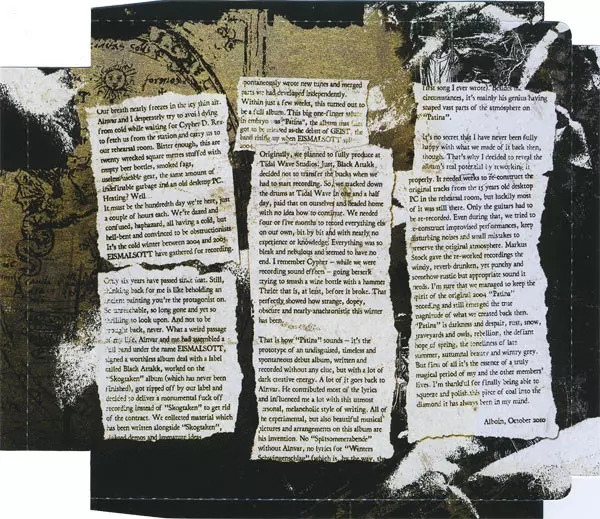 Our breath nearly freezes in the icy thin air.
Ainvar and I desperately try to avoid dying
from cold while waiting for Cypher D. Rex
to fetch us from the station and carry us to
our rehearsal room. Bitter enough, this are
twenty wrecked square metres stuffed with
empty beer bottles, smoked fags,
useless/usable gear, the same amount of
indefinable garbage and an old desktop PC.
Heating? Well...
It must be the hundredth day we're here, just
a couple of hours each. We're dazed and
confused, haphazard, all having a cold, but
hell-bent and convinced to be obstructionists
It's the cold winter between 2004 and 2005,
EISMALSOTT have gathered for recording.
Only six years have passed since then. Still,
thinking back for me is like beholding an
ancient painting you're the protagonist on.
So unreachable, so long gone and yet so
thrilling to look upon. And not to be
brought back, never. What a weird passage
of my life, Ainvar and me had assembled a
full band under the name EISMALSOTT,
signed a worthless album deal with a label
called Black Attakk, worked on the
"Skogtaken" album (which has never been
finished), got ripped off by our label and
decided to deliver a monumental fuck off
recording instead of "Skogtaken" to get rid
of the contract. We collected material which
has been written alongside "Skogtaken",
naked demos and immature ideas
spontaneously wrote new tunes and merged
parts we had developed independently.
Within just a few weeks, this turned out to
be a full album. This big one-finger salute
in embryo was "Patina", the album that
got to be released as the debut of GEIST, the
rising up when EISMALSOTT
Originally, we planned to fully produce at
Tidal Wave Studios. Just, Black Attakk
decided not to transfer the bucks when we
had to start recording. So, we tracked down
the drums at Tidal Wave in one and a half
day, paid that on ourselves and headed home
with no idea how to continue. We needed
four or five months to record everything else
on our own, bit by bit and with nearly no
experience or knowledge. Everything was so
bleak and nebulous and seemed to have no
end. I remember Cypher – while we were
recording sound effects – going berserk
trying to smash a wine bottle with a hammer
Thrice that is, at least, before it broke. That
perfectly showed how strange, dopey,
obscure and nearly-anachronistic this winter
has been.
That is how "Patina" sounds – it's the
prototype of an undignised, timeless and
spontaneous debut album, written and
recorded without any clue, but with a lot of
dark creative energy. A lot of it goes back to
Ainvar. He contributed most of the lyrics
and influenced me a lot with this utmost
arsonal, melancholic style of writing. All of
the experimental, but also beautiful musical
pictures and arrangements on this album are
his invention. No "Spätsommerabende"
without Ainvar, no lyrics for "Winters
Schwingenschlag" (which is, by the way,
first song I ever wrote). Besides
circumstances, it's mainly his genius having
shaped vast parts of the atmosphere on
"Patina".
It's no secret that I have never been fully
happy with what we made of it back then,
though. That's why I decided to reveal the
album's real potential by reworking it
properly. It needed weeks to re-construct the
original tracks from the 15 years old desktop
PC in the rehearsal room, but luckily most
of it was still there. Only the guitars had to
be re-recorded. Even during that, we tried to
re-construct improvised performances, keep
disturbing noises and small mistakes to
preserve the original atmosphere. Markus
Stock gave the re-worked recordings the
windy, reverb-drunken, yet punchy and
somehow rustic but appropriate sound it
needs. I'm sure that we managed to keep the
spirit of the original 2004 "Patina"
recording and still emerged the true
magnitude of what we created back then.
"Patina" is darkness and despair, rust, snow,
graveyards and owls, rebellion, the defiant
hope of spring, the loneliness of late
summer, autumnal beauty and wintry grey.
But first of all it's the essence of a truly
magical period of my and the other members'
lives. I'm thankful for finally being able to
squeeze and polish this piece of coal into the
diamond it has always been in my mind.
Alboin, October 2010